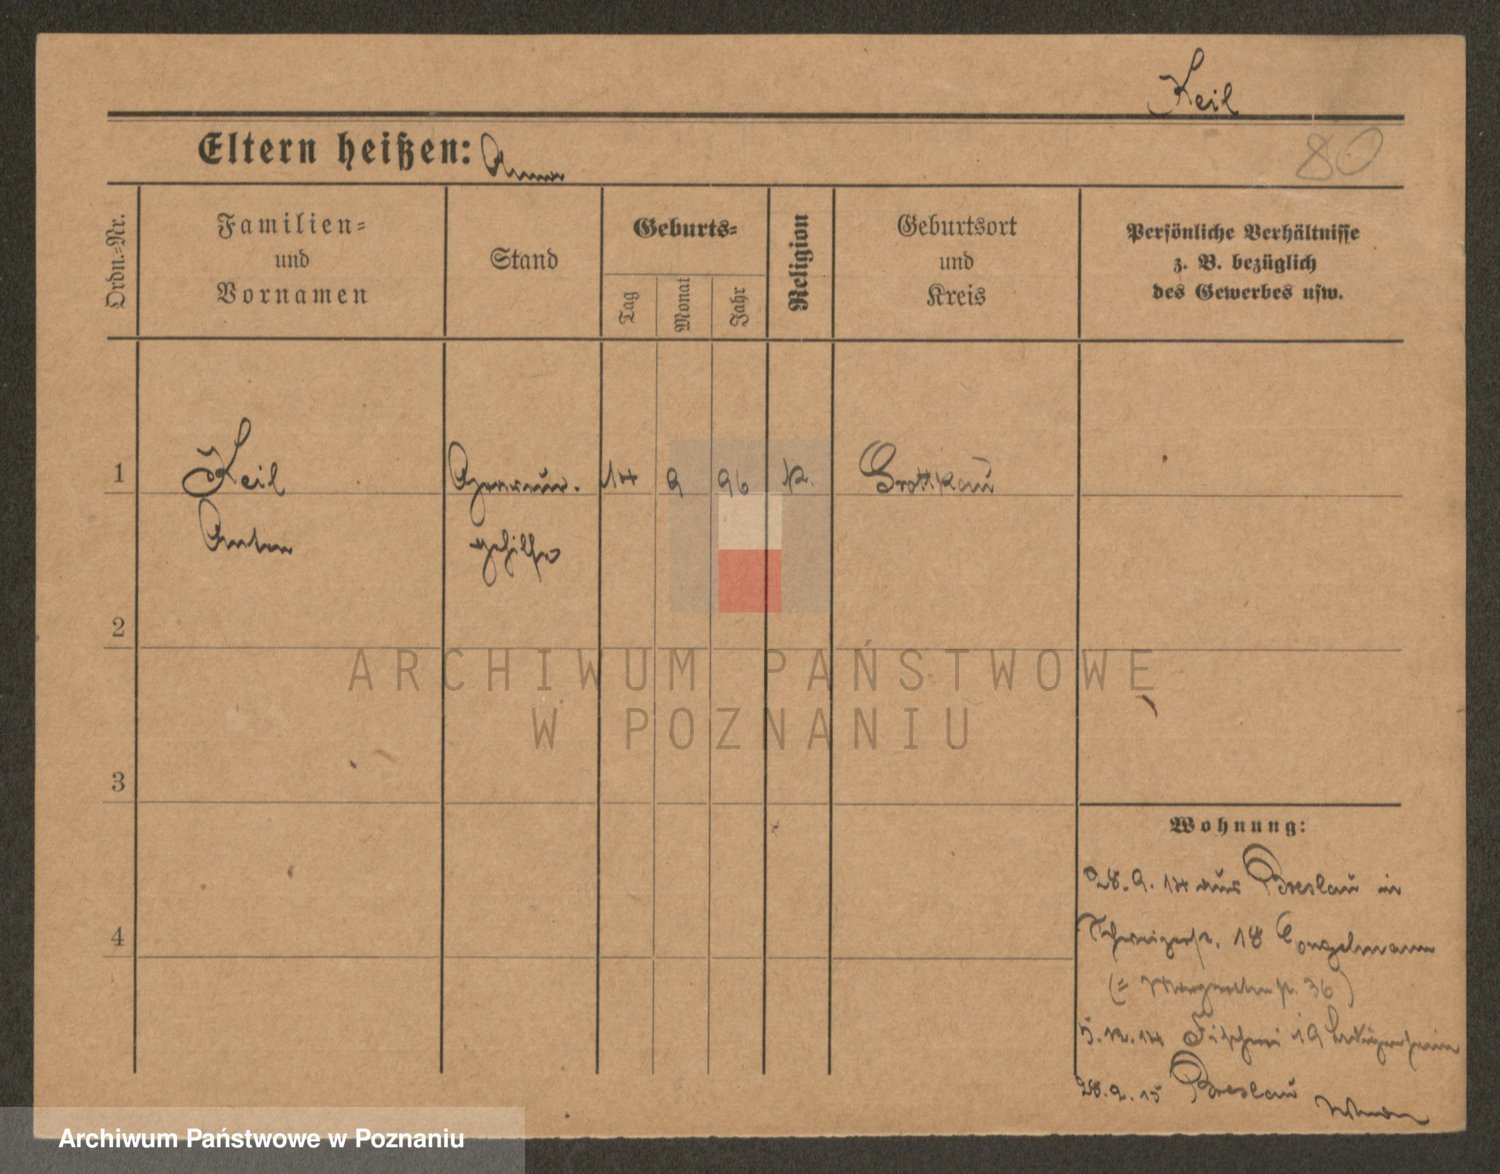 Keil
Eltern heißen: Anna
80
Ordn.-Nr.
Familien-
und
Vornamen
Stand
Geburts-
Tag
Monat
Jahr
Religion
Geburtsort
und
Kreis
Persönliche Verhältnisse
z. B. bezüglich
des Gewerbes usw.
1
Keil
14 9 96 k.
Grottkau
Anton
gehilfe
2
ARCHIWUM PAŃSTWOWE
W POZNANIU
3
Wohnung:
28.9.14 aus Breslau in
4
18
36)
5.12.14 Fischerei 19
28.2.15 Breslau
Archiwum Państwowe w Poznaniu